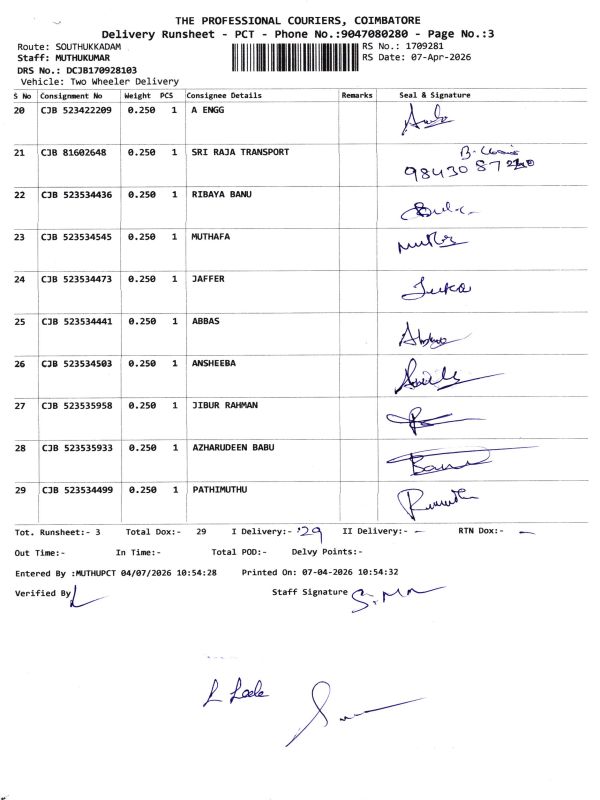 THE PROFESSIONAL COURIERS, COIMBATORE
Delivery Runsheet - PCT - Phone No.:9047080280 - Page No.:3
Route: SOUTHUKKADAM RS No.: 1709281
Staff: MUTHUKUMAR RS Date: 07-Apr-2026
DRS No.: DCJB170928103
Vehicle: Two Wheeler Delivery
S No Consignment No Weight PCS Consignee Details Remarks Seal & Signature
20 CJB 523422209 0.250 1 A ENGG
21 CJB 81602648 0.250 1 SRI RAJA TRANSPORT
22 CJB 523534436 0.250 1 RIBAYA BANU
23 CJB 523534545 0.250 1 MUTHAFA
24 CJB 523534473 0.250 1 JAFFER
25 CJB 523534441 0.250 1 ABBAS
26 CJB 523534503 0.250 1 ANSHEEBA
27 CJB 523535958 0.250 1 JIBUR RAHMAN
28 CJB 523535933 0.250 1 AZHARUDEEN BABU
29 CJB 523534499 0.250 1 PATHIMUTHU
Tot. Runsheet:- 3 Total Dox:- 29 I Delivery:- 29 II Delivery:- - RTN Dox:- -
Out Time:- In Time:- Total POD:- Delvy Points:-
Entered By :MUTHUPCT 04/07/2026 10:54:28 Printed On: 07-04-2026 10:54:32
Verified By Staff Signature